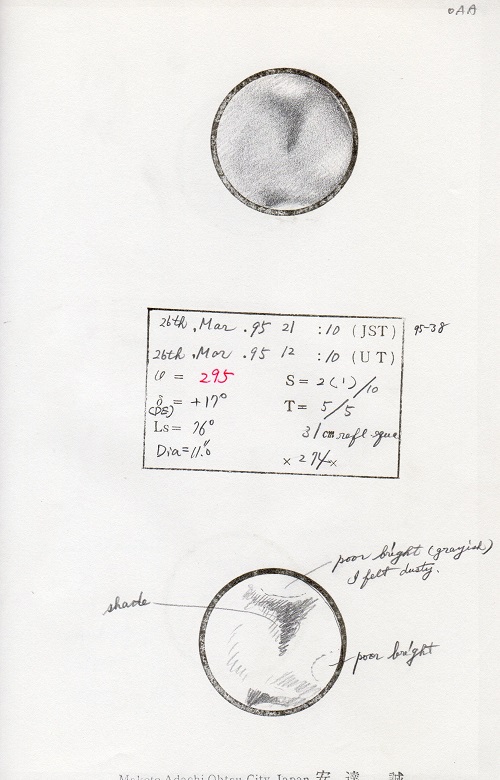 OAA
26th . Mar . 95 21 : 10 (JST) 95-38
26th . Mar . 95 12 : 10 (UT)
ω = 295 S = 2(1)/10
δ(DE) = +17° T = 5/5
Ls = 76° 31cm refl
Dia = 11.″0 × 274×
poor bright (grayish)
I felt dusty.
shade
poor bright
Makoto Adachi Ohtsu City, Japan 安達 誠